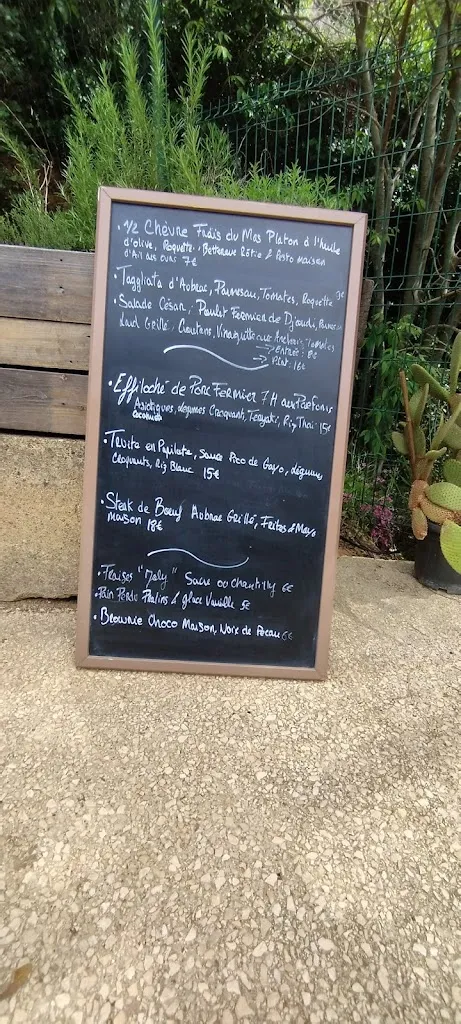 . 1/2 Chèvre Frais du Mas Platon à l'huile
d'olive, Roquette, Betterave Rôtie & Pesto maison
d'Ail des ours 7€
. Tagliata d'Aubrac, Parmesan, Tomates, Roquette 9€
. Salade César, Poulet Fermier de
Lard Grillé, Croutons, Vinaigrette aux Anchois, Tomates
→ Entrée : 8€
→ Plat : 16€
. Effiloché de Porc Fermier 7H aux Parfums
Asiatiques, légumes Croquants, Teryaki, Riz Thaï 15€
. Truite en Papillote, Sauce Pico de Gayo, légumes
Croquants, Riz Blanc 15€
. Steak de Bœuf Aubrac Grillé, Frites & Mayo
maison 18€
. Fraises "Maly" Sucre ou chantilly 6€
. Pain Perdu Pralins & glace Vanille 5€
. Brownie Choco Maison, Noix de Pécan 6€